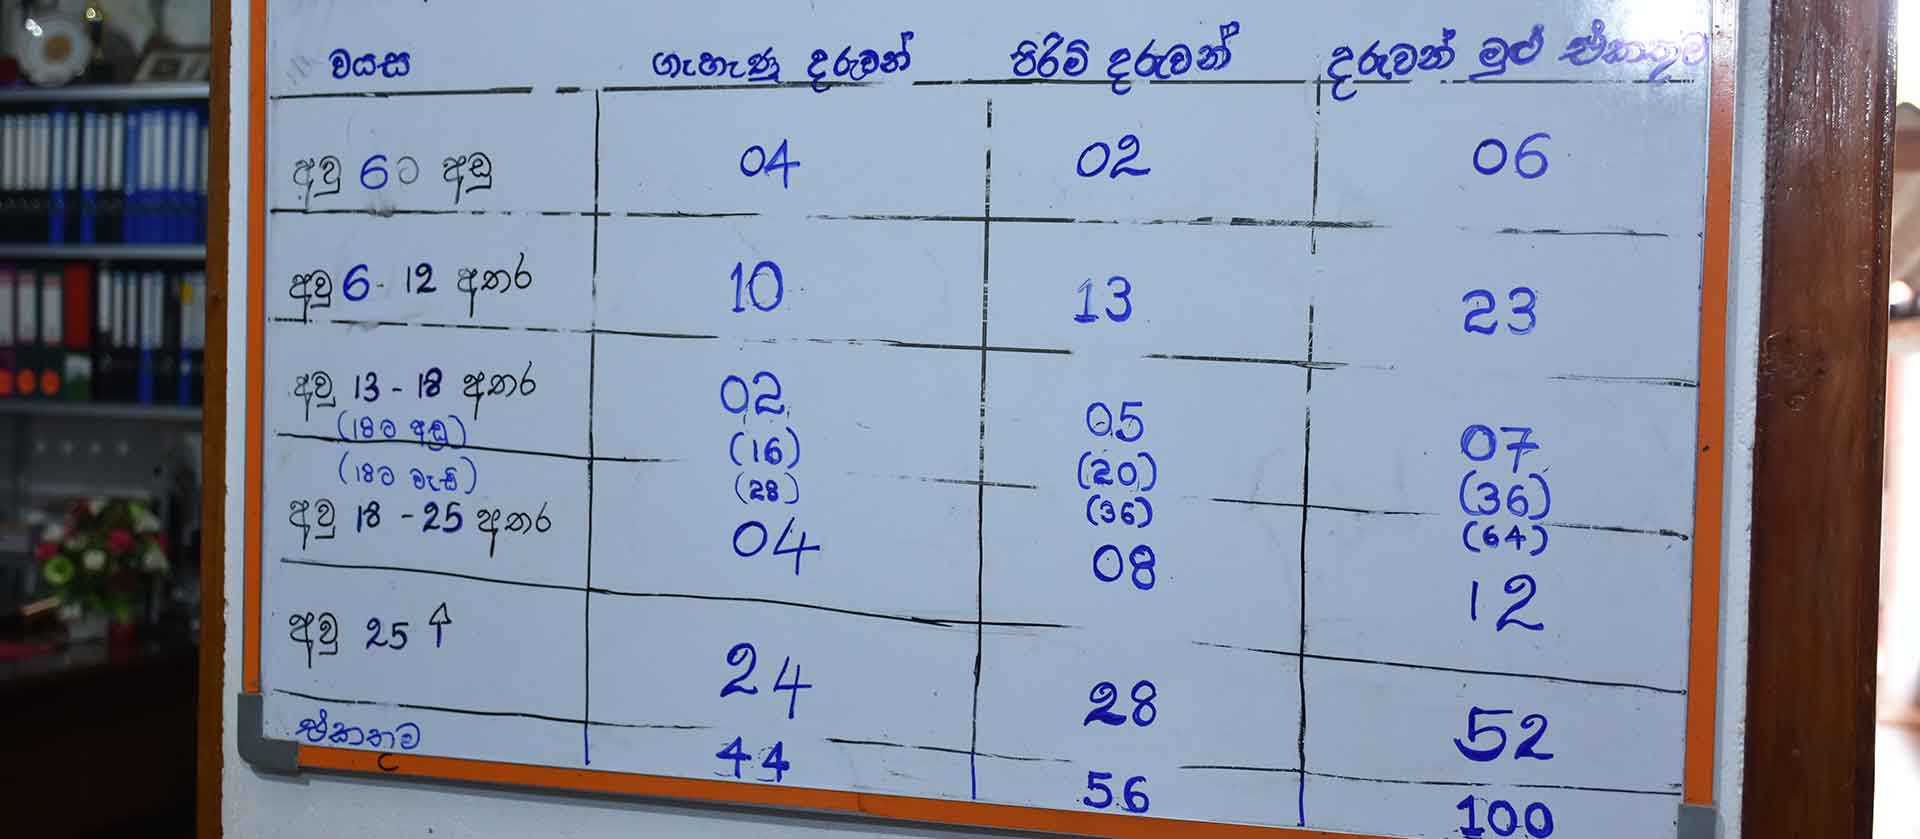 වයස ගැහැණු දරුවන් පිරිමි දරුවන් දරුවන් මුළු එකතුව
අවු 6ට අඩු 04 02 06
අවු 6 - 12 අතර 10 13 23
අවු 13 - 18 අතර 02 05 07
(18ට අඩු) (16) (20) (36)
(18ට වැඩි) (28) (36) (64)
අවු 18 - 25 අතර 04 08 12
අවු 25 ↑ 24 28 52
එකතුව 44 56 100